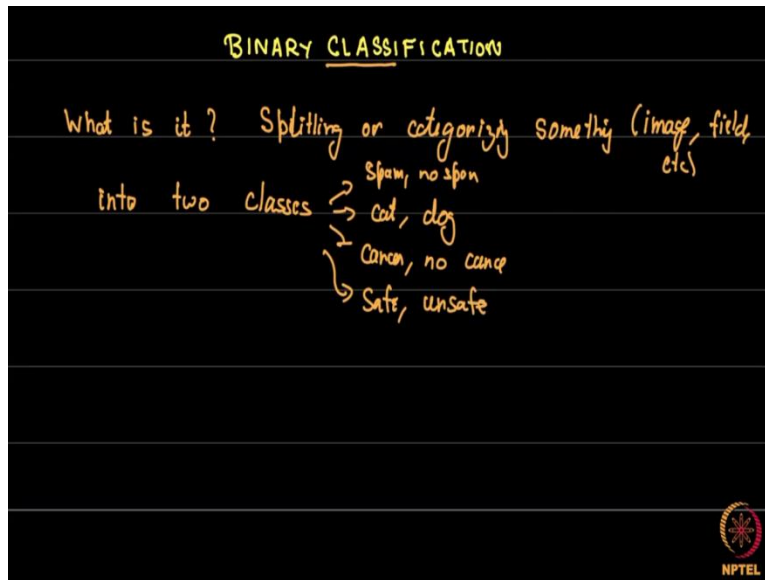 BINARY CLASSIFICATION
What is it? Splitling or categorizing somethig (image, field,
etc)
into two classes
spam, no spam
cat, dog
Cancer, no cance
Safe, unsafe
NPTEL